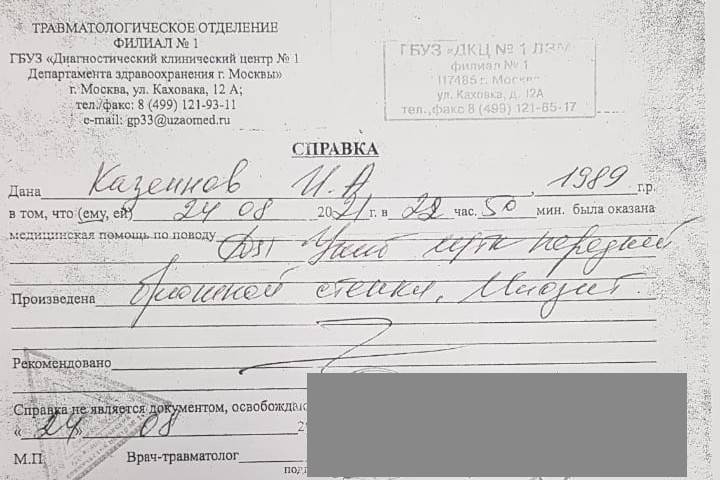 ТРАВМАТОЛОГИЧЕСКОЕ ОТДЕЛЕНИЕ
ФИЛИАЛ № 1
ГБУЗ «Диагностический клинический центр № 1
Департамента здравоохранения г. Москвы»
г. Москва, ул. Каховака, 12 А;
тел./факс: 8 (499) 121-93-11
e-mail: gp33@uzaomed.ru
ГБУЗ «ДКЦ № 1 ДЗМ
филиал № 1
117485 г. Москва
ул. Каховка, д. 12А
тел., факс 8 (499) 121-65-17
СПРАВКА
Дана Казеннов И. А , 1989 г.р.
в том, что (ему, ей) 24 08 2021 г. в 22 час. 50 мин. была оказана
медицинская помощь по поводу Ушиб передней
Произведена брюшной стенки, Миозит.
Рекомендовано
Справка не является документом, освобождаю
« 24 » 08 2
М.П. Врач-травматолог